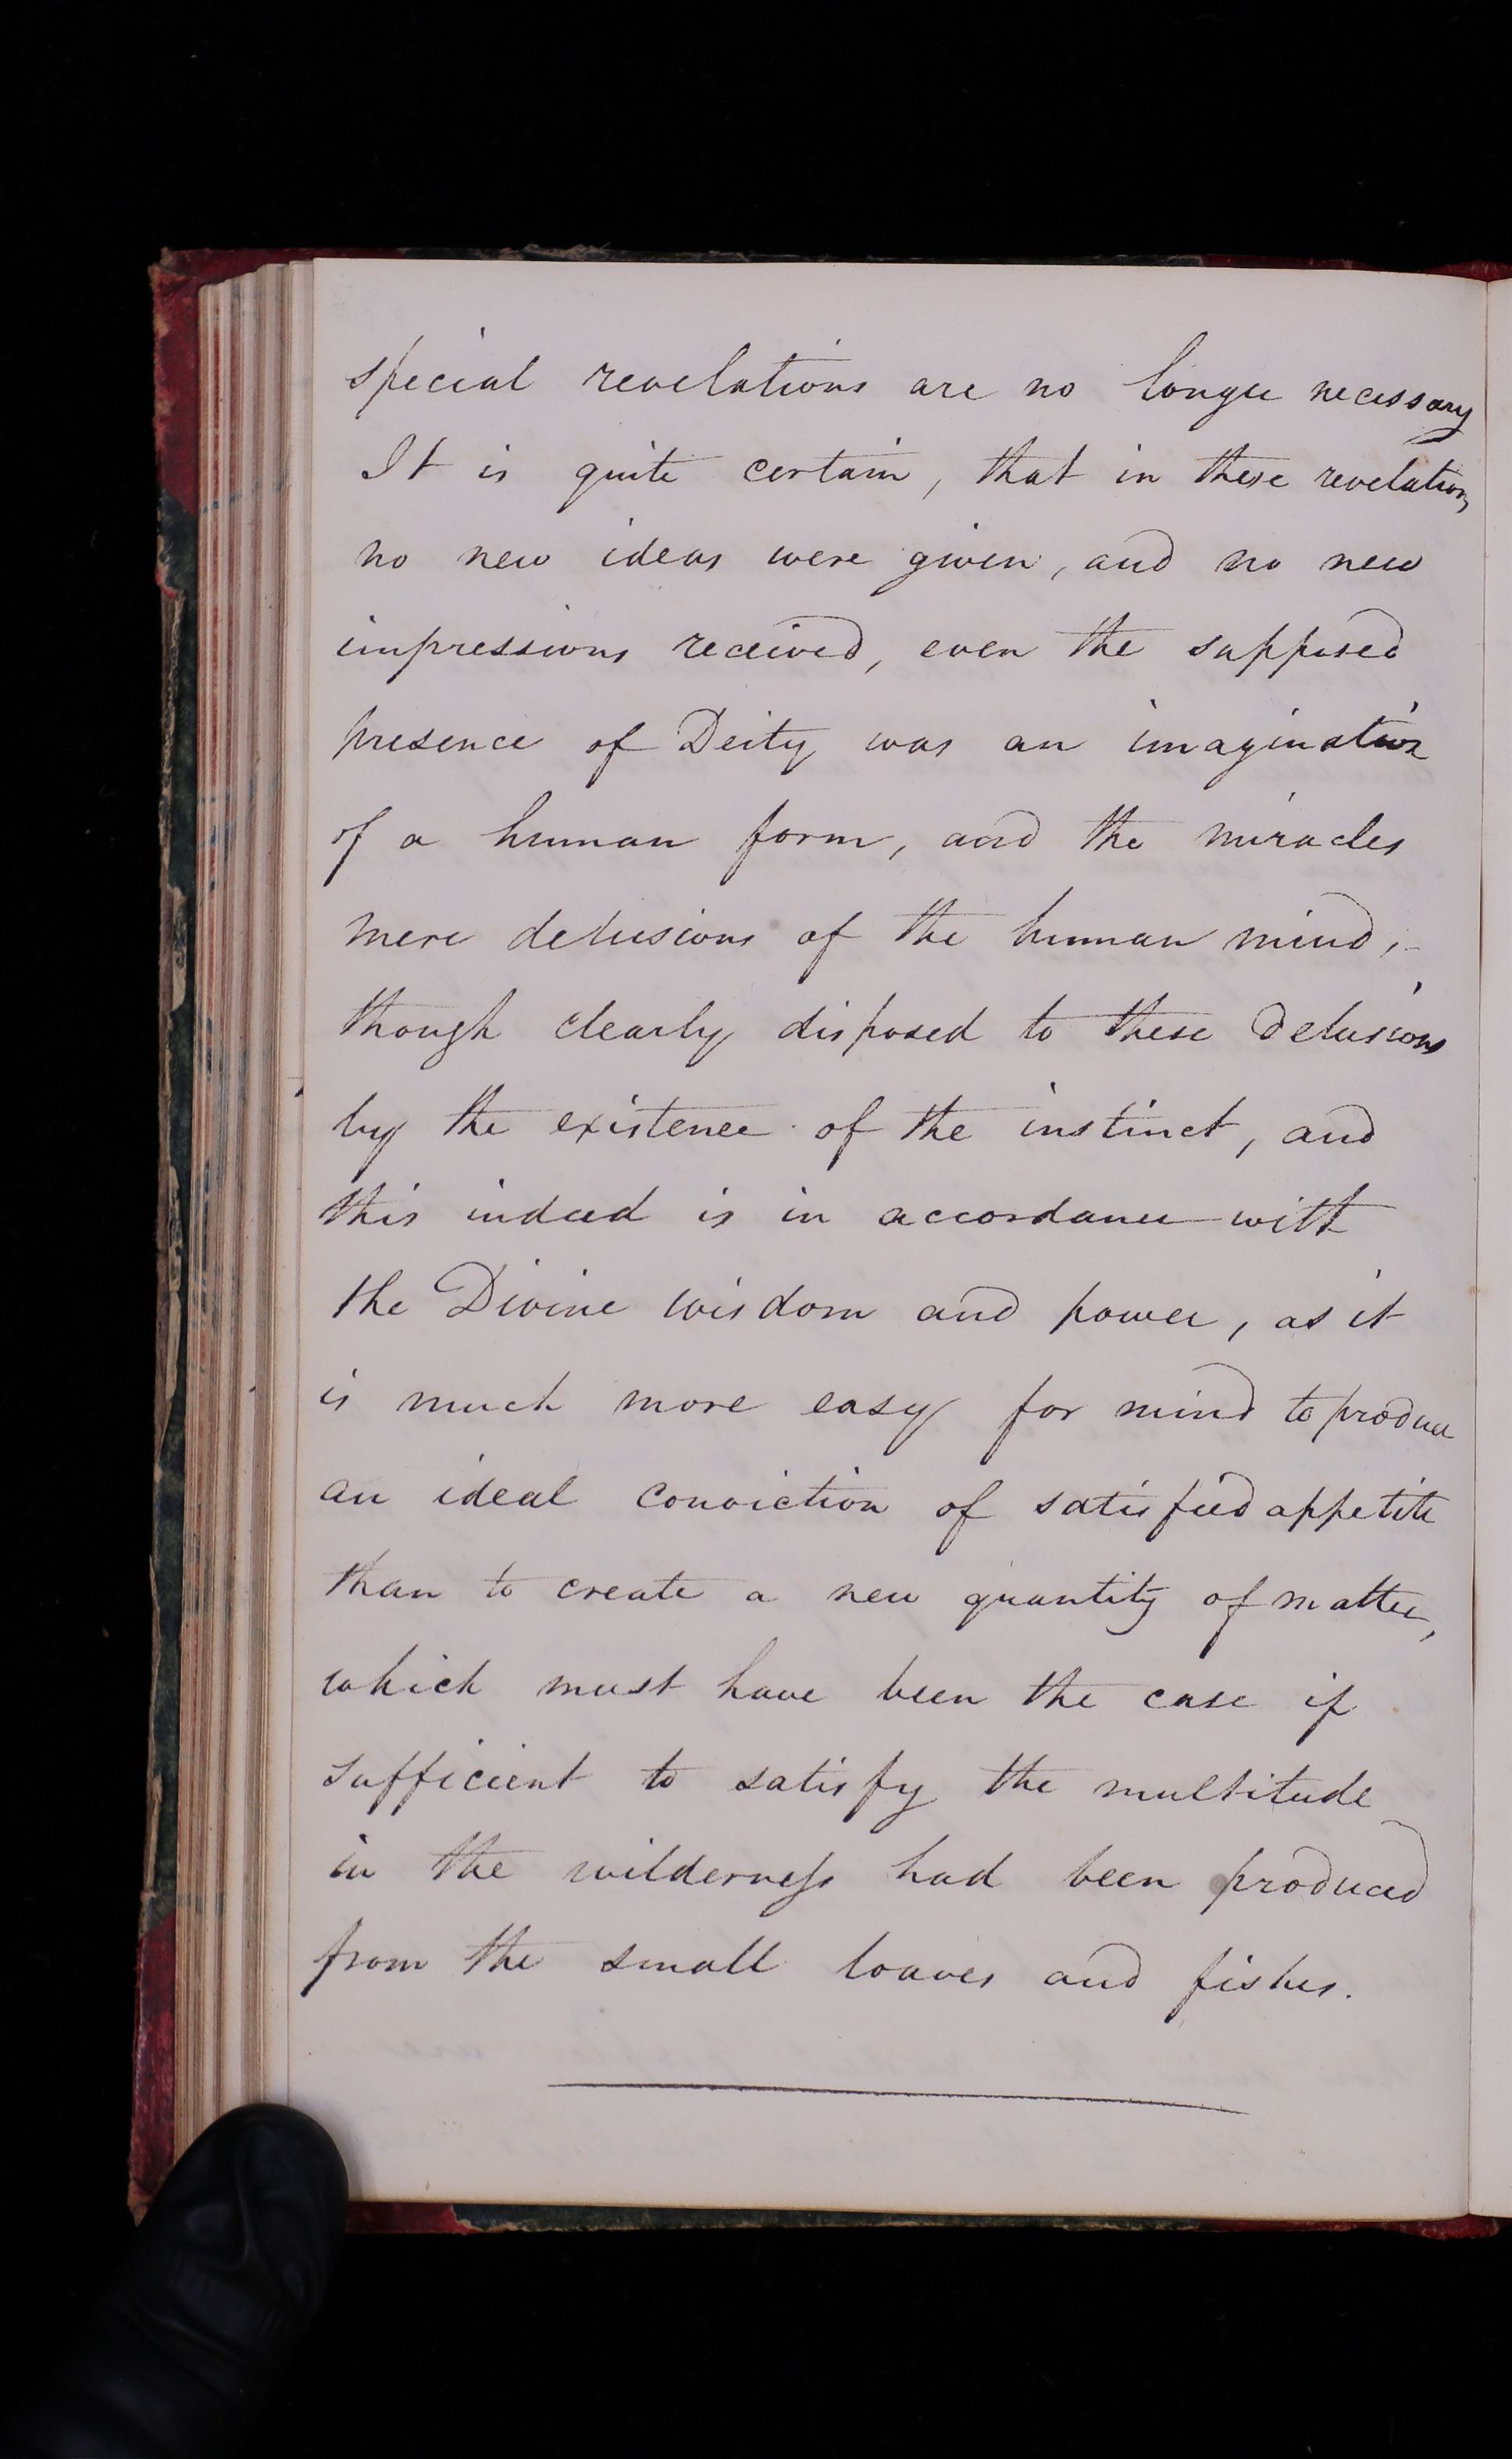 special revelations are no longer necessary
It is quite certain, that in these revelations
no new ideas were given, and no new
impressions received, even the supposed
presence of Deity was an imagination
of a human form, and the miracles
mere delusions of the human mind, -
though clearly disposed to these delusions
by the existence of the instinct, and
this indeed is in accordance with
the Divine wisdom and power, as it
is much more easy for mind to produce
an ideal conviction of satisfied appetite
than to create a new quantity of matter,
which must have been the case if
sufficient to satisfy the multitude
in the wilderness had been produced
from the small loaves and fishes.